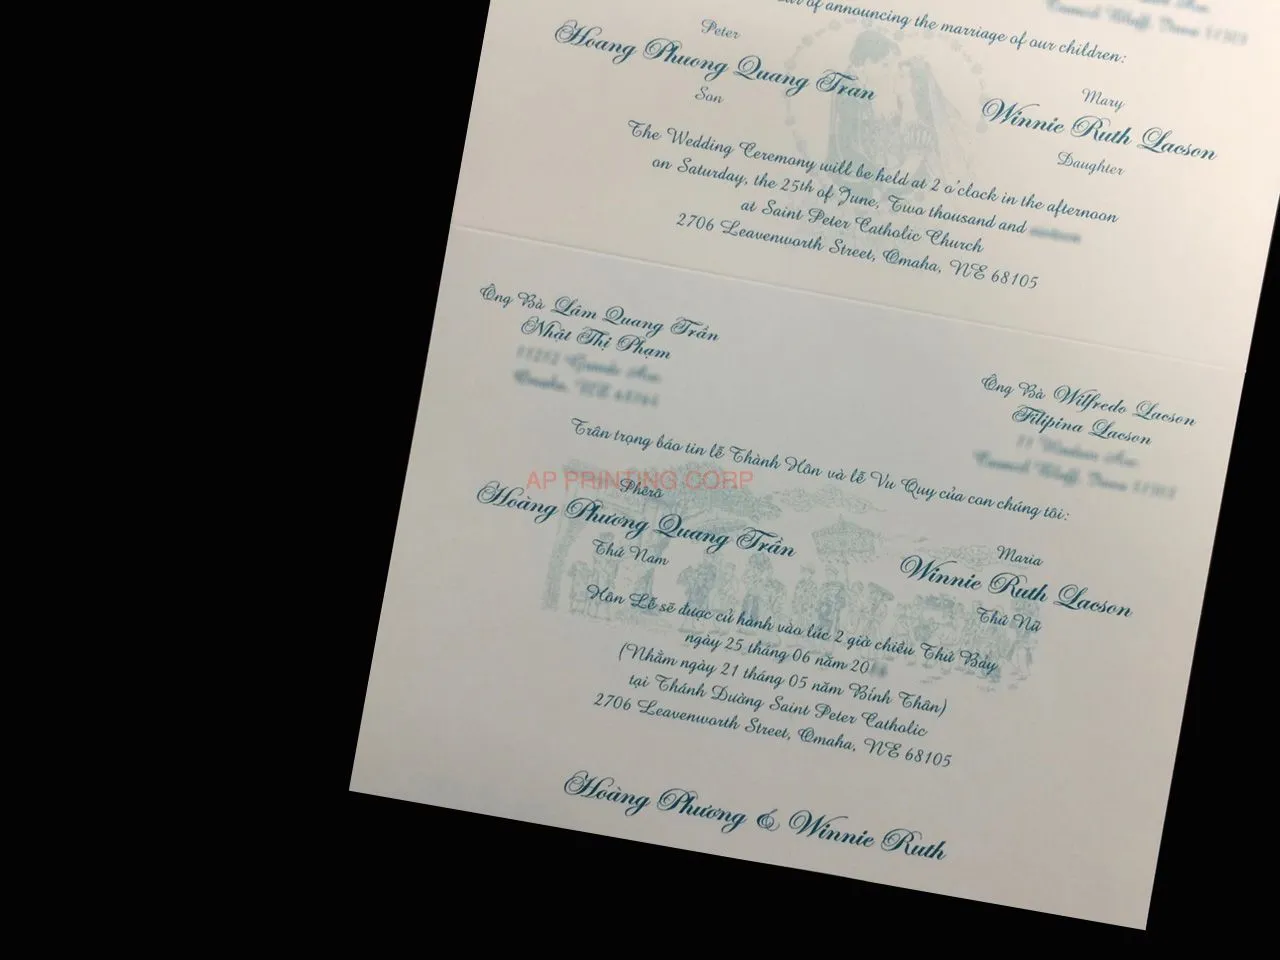 of announcing the marriage of our children:
Peter
Hoang Phuong Quang Tran
Son
Mary
Winnie Ruth Lacson
Daughter
The Wedding Ceremony will be held at 2 o'clock in the afternoon
on Saturday, the 25th of June, Two thousand and
at Saint Peter Catholic Church
2706 Leavenworth Street, Omaha, NE 68105
Ông Bà Lâm Quang Trần
Nhật Thị Phạm
Ông Bà Wilfredo Lacson
Filipina Lacson
Trân trọng báo tin lễ Thành Hôn và lễ Vu Quy của con chúng tôi:
AP PRINTING CORP
Phêrô
Hoàng Phương Quang Trần
Thứ Nam
Maria
Winnie Ruth Lacson
Thứ Nữ
Hôn Lễ sẽ được cử hành vào lúc 2 giờ chiều Thứ Bảy
ngày 25 tháng 06 năm 20
(Nhằm ngày 21 tháng 05 năm Bính Thân)
tại Thánh Đường Saint Peter Catholic
2706 Leavenworth Street, Omaha, NE 68105
Hoàng Phương & Winnie Ruth